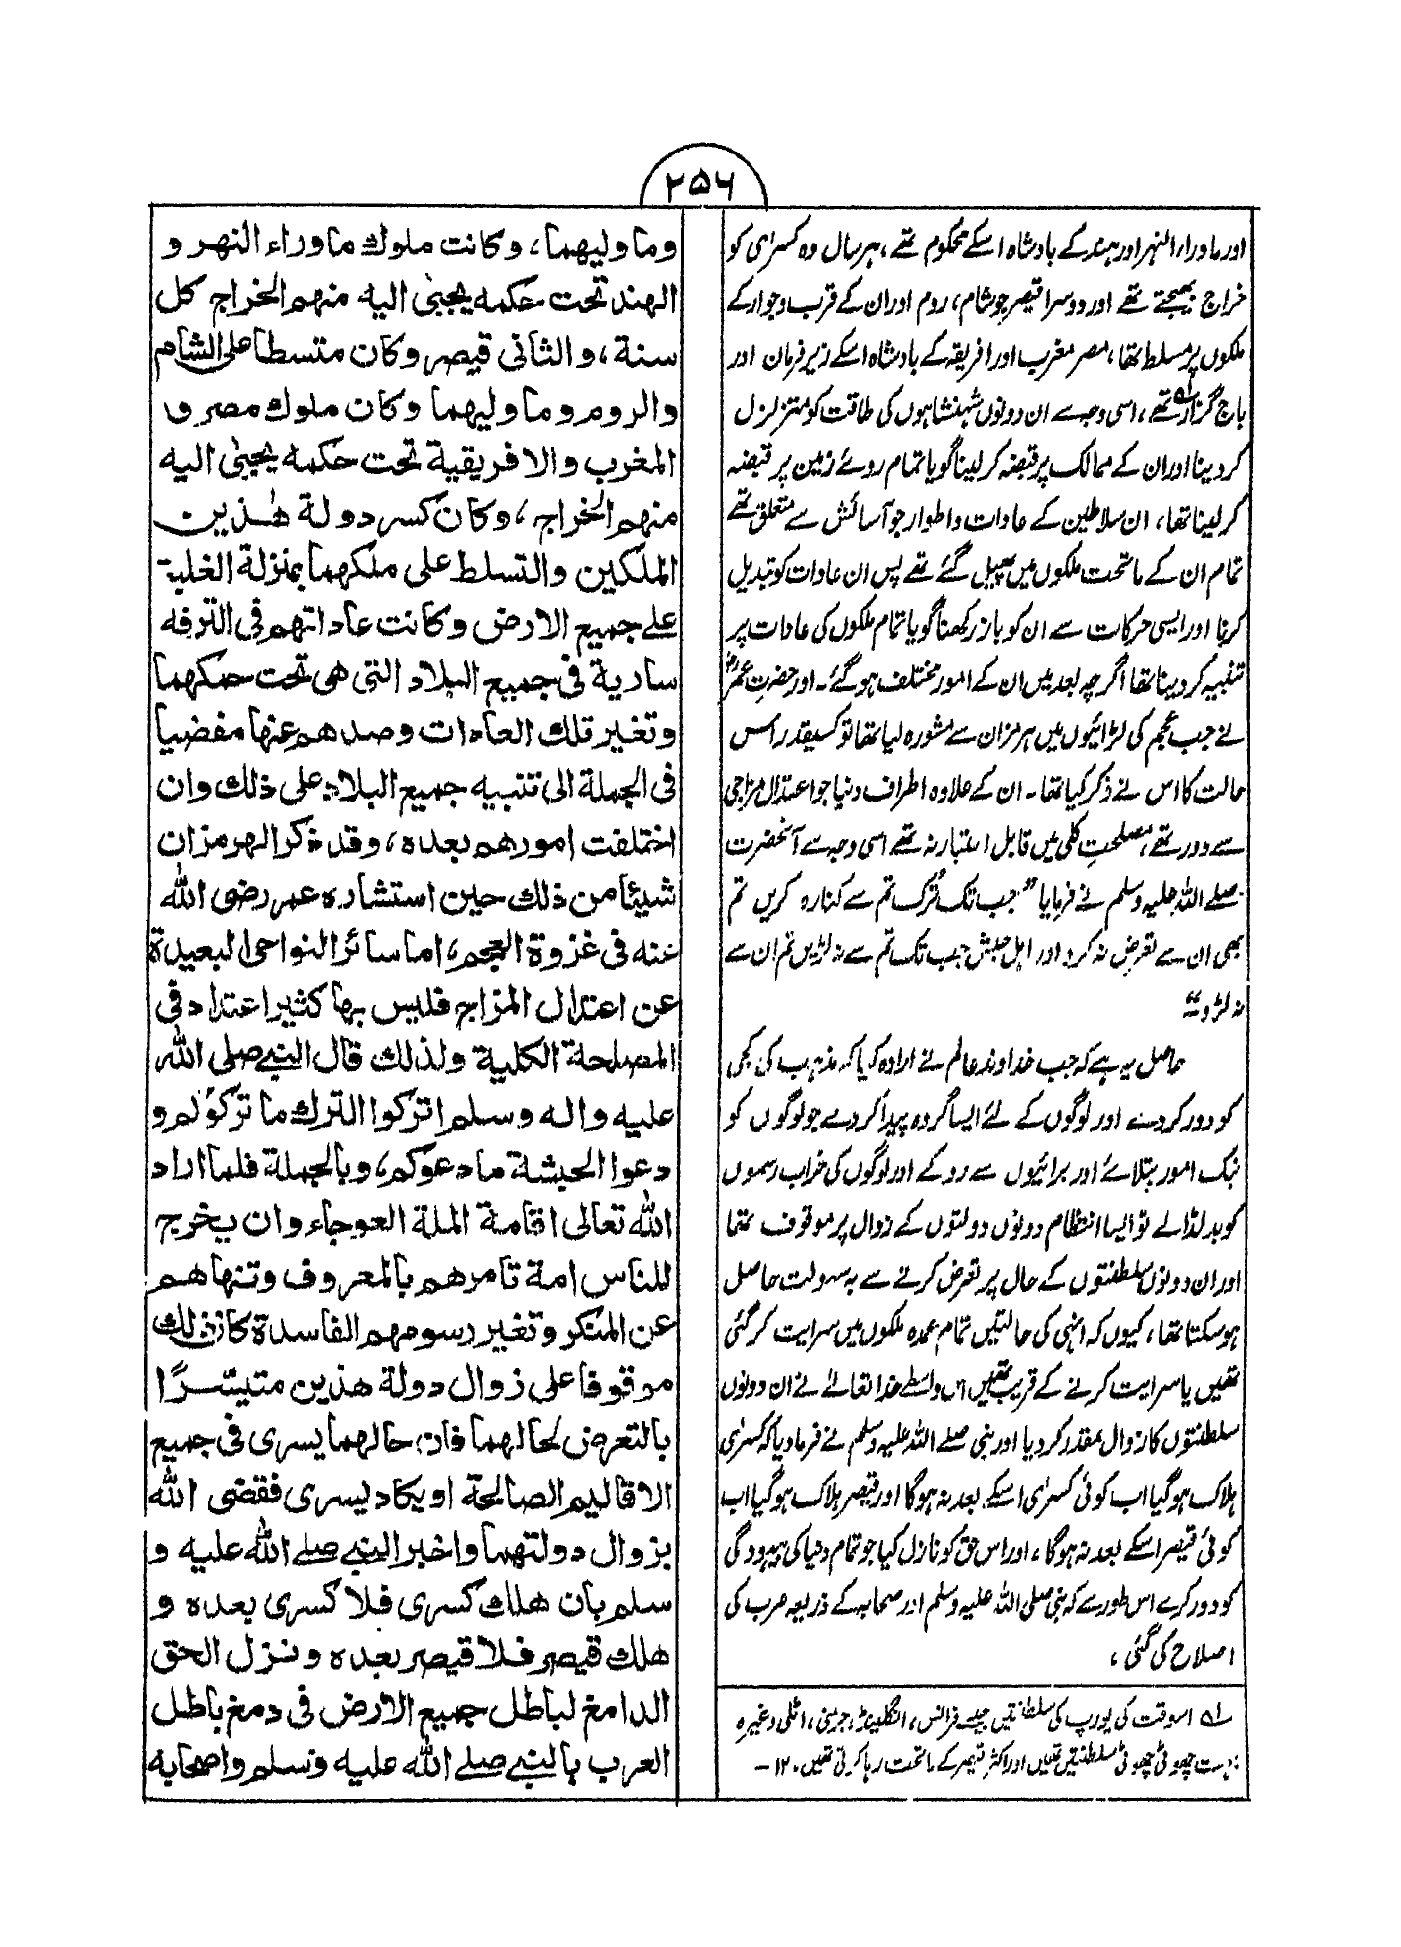 ۲۵۶
اور ماوراء النہر اور ہند کے بادشاہ اسکے محکوم تھے، ہر سال وہ کسریٰ کو
خراج بھیجتے تھے اور دوسرا قیصر جو شام، روم اور ان کے قرب و جوار کے
ملکوں پر مسلط تھا، مصر مغرب اور افریقہ کے بادشاہ اسکے زیر فرمان اور
باج گزار تھے، اسی وجہ سے ان دونوں شہنشاہوں کی طاقت کو متزلزل
کر دینا اور ان کے ممالک پر قبضہ کر لینا گویا تمام روئے زمین پر قبضہ
کر لینا تھا، ان سلاطین کے عادات و اطوار جو آسائش سے متعلق تھے
تمام ان کے ماتحت ملکوں میں پھیل گئے تھے پس ان عادات کو تبدیل
کرنا اور ایسی حرکات سے ان کو باز رکھنا گویا تمام ملکوں کی عادات پر
تنبیہ کر دینا تھا اگرچہ بعد میں ان کے امور مختلف ہو گئے۔ اور حضرت عمرؓ
نے جب عجم کی لڑائیوں میں ہرمزان سے مشورہ لیا تھا تو کسیقدر اس
حالت کا اس نے ذکر کیا تھا۔ ان کے علاوہ اطراف دنیا جو اعتدال مزاجی
سے دور تھے، مصلحتِ کلی میں قابل اعتبار نہ تھے اسی وجہ سے آنحضرت
صلے اللہ علیہ وسلم نے فرمایا "جب تک تُرک تم سے کنارہ کریں تم
بھی ان سے تعرض نہ کرو اور اہل حبش جب تک تم سے نہ لڑیں تم ان سے
نہ لڑو"
حاصل یہ ہے کہ جب خداوند عالم نے ارادہ کیا کہ مذہب کی کجی
کو دور کردے اور لوگوں کے لئے ایسا گروہ پیدا کر دے جو لوگوں کو
نیک امور بتلائے اور برائیوں سے روکے اور لوگوں کی خراب رسموں
کو بدل ڈالے تو ایسا انتظام دونوں دولتوں کے زوال پر موقوف تھا
اور ان دونوں سلطنتوں کے حال پر تعرض کرنے سے بہ سہولت حاصل
ہو سکتا تھا، کیوں کہ انہی کی حالتیں تمام عمدہ ملکوں میں سرایت کر گئی
تھیں یا سرایت کرنے کے قریب تھیں اس واسطے خدا تعالےٰ نے ان دونوں
سلطنتوں کا زوال مقدر کر دیا اور نبی صلے اللہ علیہ وسلم نے فرما دیا کہ کسریٰ
ہلاک ہو گیا اب کوئی کسریٰ اسکے بعد نہ ہوگا اور قیصر ہلاک ہو گیا اب
کوئی قیصر اسکے بعد نہ ہوگا، اور اس حق کو نازل کیا جو تمام دنیا کی بیہودگی
کو دور کرے اس طور سے کہ نبی صلی اللہ علیہ وسلم اور صحابہ کے ذریعہ عرب کی
اصلاح کی گئی،
ؔ۱ اسوقت کی یورپ کی سلطانتیں جیسے فرانس، انگلینڈ، جرمنی، اٹلی وغیرہ
بہت چھوٹی چھوٹی سلطنتیں تھیں اور اکثر قیصر کے ماتحت رہا کرتی تھیں۔ ۱۲ـ
وما وليهما، وكانت ملوك ماوراء النهر و
الهند تحت حكمه يجبىٰ اليه منهم الخراج كل
سنة، والثانى قيصر وكان متسطا على الشام
والروم وما وليهما وكان ملوك مصر و
المغرب والافريقية تحت حكمه يجبىٰ اليه
منهم الخراج، وكان كسر دولة هٰذين
الملكين والتسلط على ملكهما بمنزلة الغلبة
علے جميع الارض وكانت عاداتهم فى الترفه
سارية فى جميع البلاد التى هى تحت حكمهما
وتغير تلك العادات وصدهم عنها مفضيا
فى الجملة الى تنبيه جميع البلاد على ذلك وان
اختلفت امورهم بعده، وقد ذكر الهرمزان
شيئا من ذلك حين استشاره عمر رضى الله
عنه فى غزوة العجم، اما سائر النواحى البعيدة
عن اعتدال المزاج فليس بها كثير اعتداد فى
المصلحة الكلية ولذلك قال النبے صلى الله
عليه واله وسلم اتركوا الترك ما تركوكم و
دعوا الحبشة ما دعوكم، وبالجملة فلما اراد
الله تعالى اقامة الملة العوجاء وان يخرج
للناس امة تامرهم بالمعروف وتنهاهم
عن المنكر وتغير رسومهم الفاسدة كان ذلك
موقوفا على زوال دولة هذين متيسّرًا
بالتعرض لحالهما فان حالهما يسرى فى جميع
الاقاليم الصالحة او يكاد يسرى فقضى الله
بزوال دولتهما واخبر النبے صلے الله عليه و
سلم بان هلك كسرى فلا كسرى بعده و
هلك قيصر فلا قيصر بعده ونزل الحق
الدامغ لباطل جميع الارض فى دمغ باطل
العرب بالنبے صلے الله عليه وسلم واصحابه